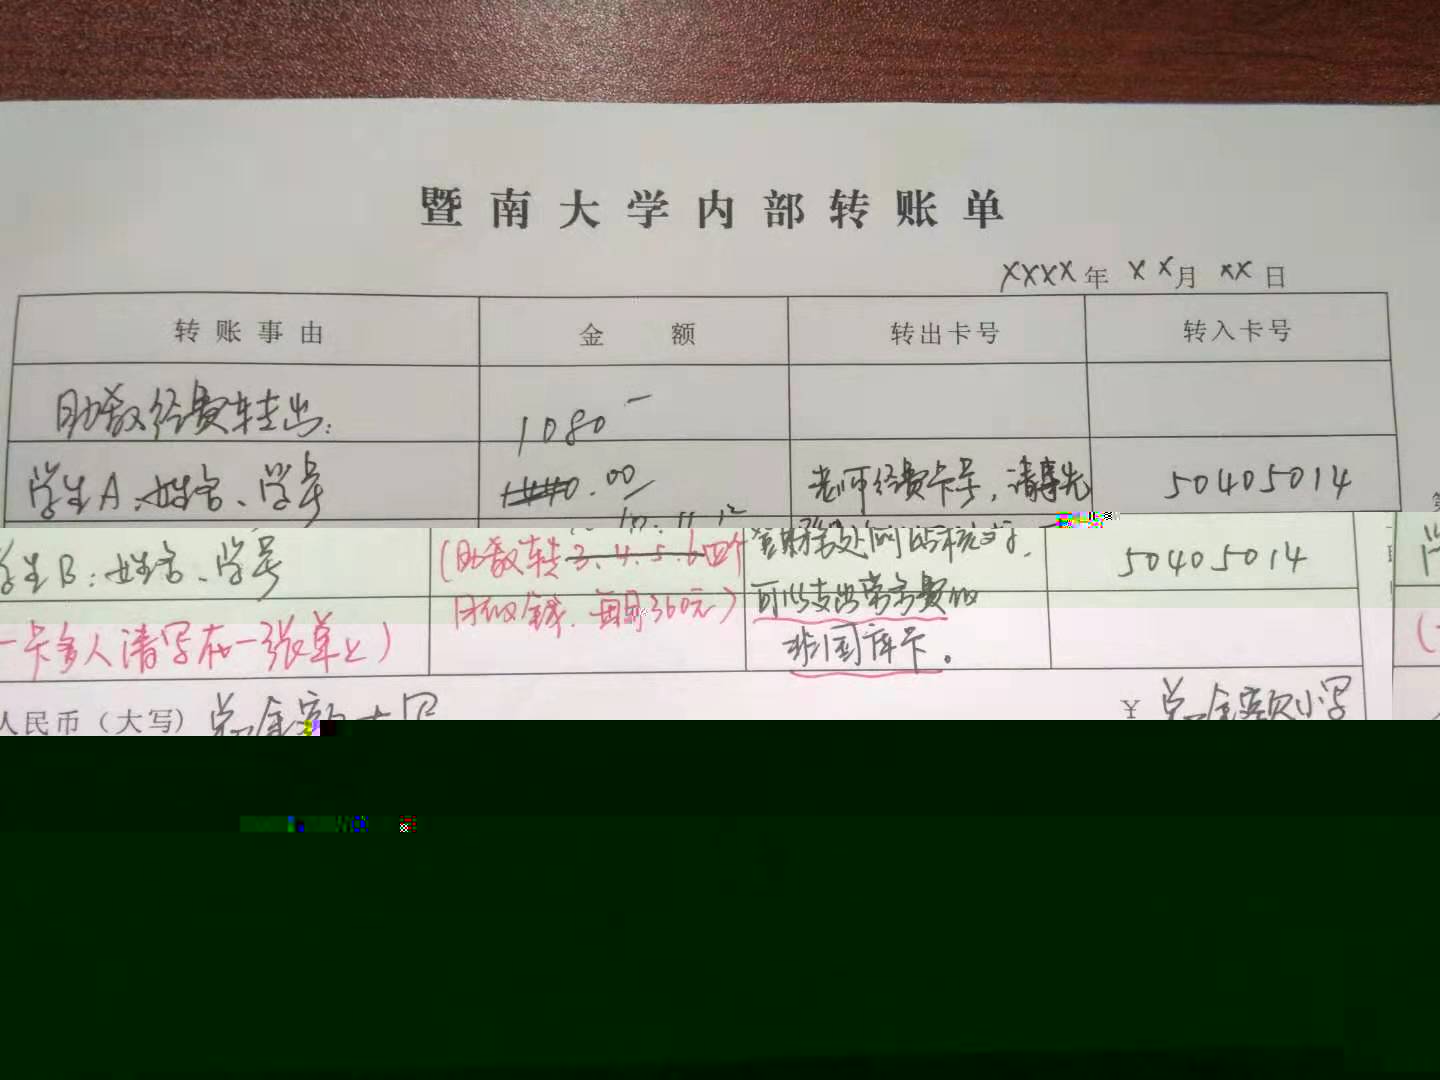 暨南大学内部转账单
XXXX年 XX月 XX日
转账事由 金额 转出卡号 转入卡号
助教经费转出: 1080
学生A、姓名、学号 0.00 老师经费卡号,请事先 50405014
10. 11. 12
学生B:姓名、学号 (助教转3.4.5.6四个 财务处 50405014
月的钱,每月360元) 可以支出劳务费的
一卡多人请写在一张单上) 非国库卡。
人民币(大写) 总金额大写 ¥ 总金额小写